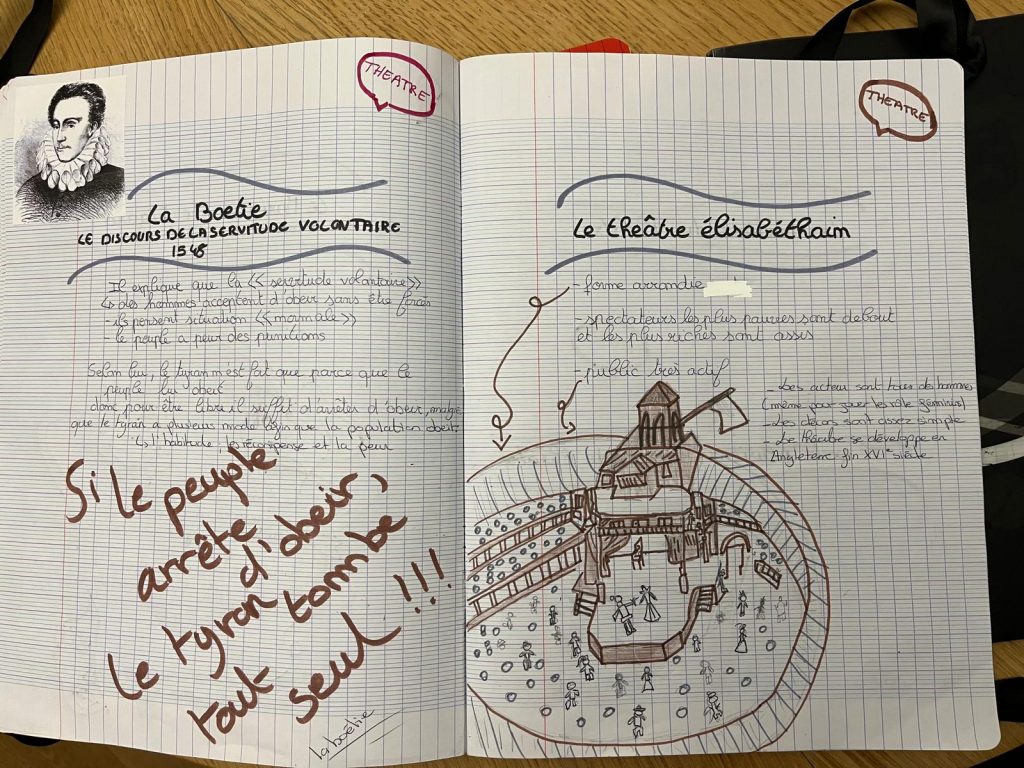 THEATRE
La Boetie
LE DISCOURS DE LA SERVITUDE VOLONTAIRE
1548
Il explique que la << servitude volontaire>>
↳ des hommes acceptent d'obeir sans être forcés
- ils pensent situation << normale >>
- le peuple a peur des punitions
Selon lui, le tyran n'est fort que parce que le
peuple lui obeit
donc pour être libre il suffit d'arrêter d'obeir, malgré
que le tyran a plusieurs mode afin que la population obeit
↳ l'habitude, les récompense et la peur
Si le peuple
arrête
d'obeir,
le tyran tombe
tout seul !!!
la boétie
THEATRE
Le théâtre élisabéthain
- forme arrondie
- spectateurs les plus pauvres sont debout
et les plus riches sont assis
- public très actif
- Les acteur sont tous des hommes
(même pour jouer les rôle féminins)
- Les décors sont assez simple
- Le théâtre se développe en
Angleterre fin XVIe siècle